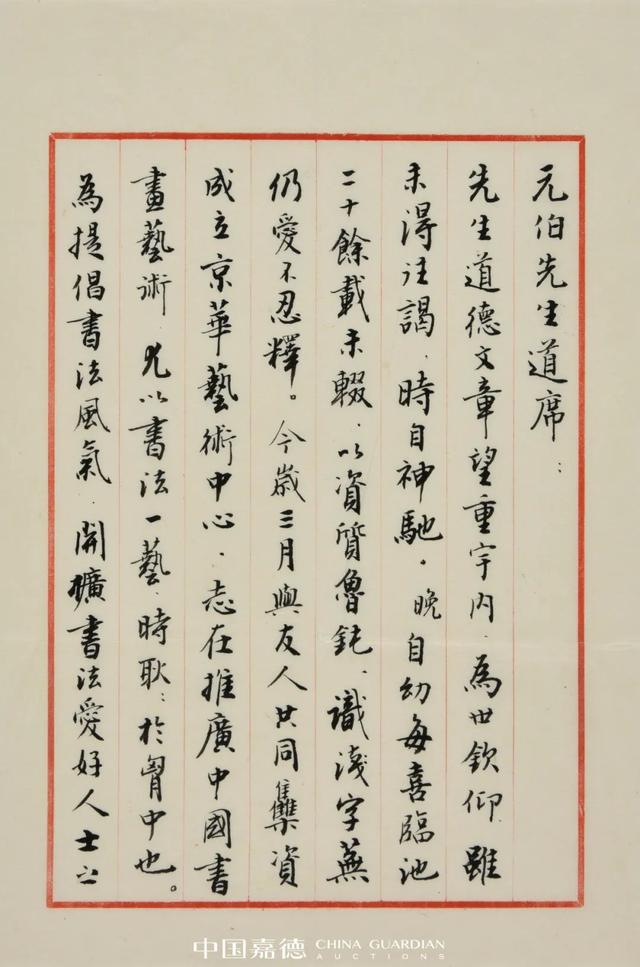 元伯先生道席：
先生道德文章望重宇内、為世欽仰雖
未得往謁、時自神馳。晚自幼每喜臨池
二十餘載未輟、以資質魯鈍、識淺字蕪
仍愛不忍釋。今歲三月與友人共同集資
成立京華藝術中心、志在推廣中國書
畫藝術、尤以書法一藝、時耿：於胷中也。
為提倡書法風氣、開擴書法愛好人士之
中国嘉德 CHINA GUARDIAN
AUCTIONS